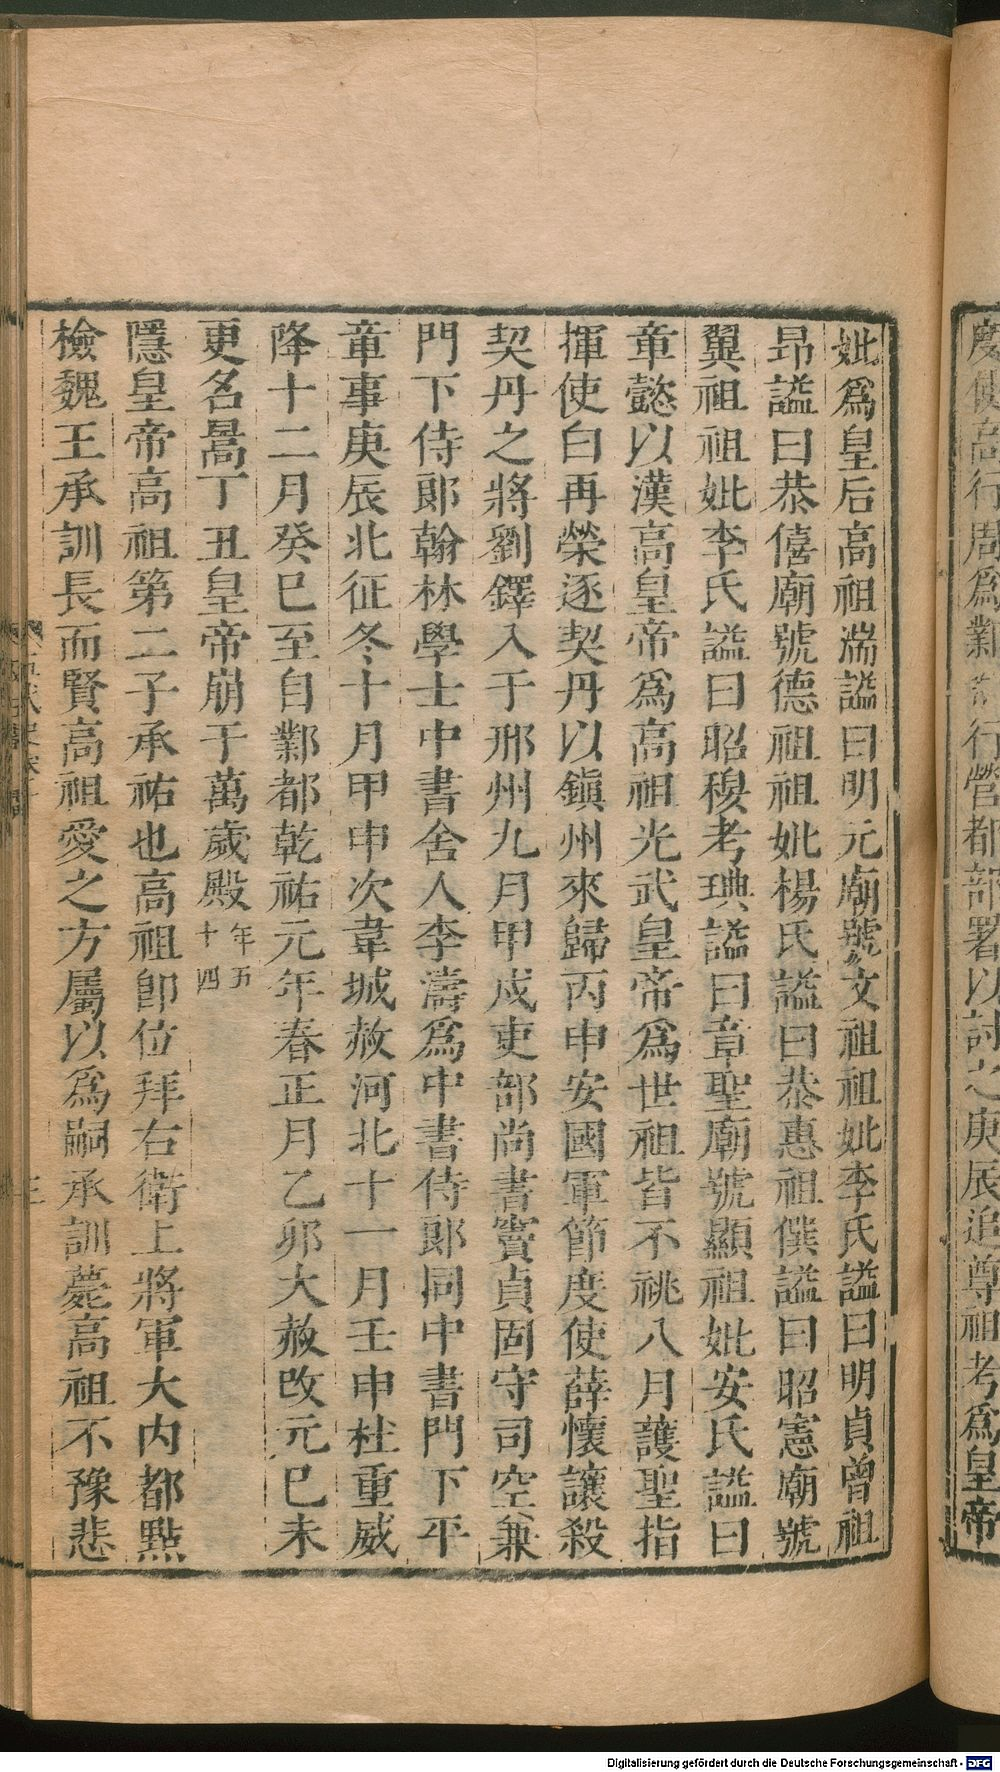 度使高行周爲鄴都行營都部署以討之庚辰追尊祖考爲皇帝
妣爲皇后高祖湍謚曰明元廟號文祖祖妣李氏謚曰明貞曾祖
昂謚曰恭僖廟號德祖祖妣楊氏謚曰恭惠祖僎謚曰昭憲廟號
翼祖祖妣李氏謚曰昭穆考琠謚曰章聖廟號顯祖妣安氏謚曰
章懿以漢高皇帝爲高祖光武皇帝爲世祖皆不祧八月護聖指
揮使白再榮逐契丹以鎮州來歸丙申安國軍節度使薛懷讓殺
契丹之將劉鐸入于邢州九月甲戌吏部尚書竇貞固守司空兼
門下侍郎翰林學士中書舍人李濤爲中書侍郎同中書門下平
章事庚辰北征冬十月甲申次韋城赦河北十一月壬申杜重威
降十二月癸巳至自鄴都乾祐元年春正月乙卯大赦改元巳未
更名暠丁丑皇帝崩于萬歲殿年五十四
隱皇帝高祖第二子承祐也高祖卽位拜右衛上將軍大内都點
檢魏王承訓長而賢高祖愛之方屬以爲嗣承訓薨高祖不豫悲
Digitalisierung gefördert durch die Deutsche Forschungsgemeinschaft - DFG